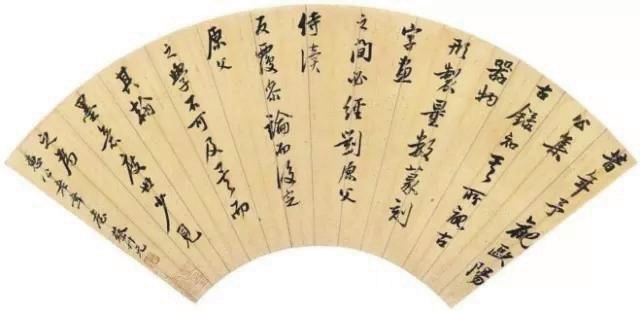 昔年予觀歐陽
公集
古錄知其所觀古
器物
形製量數篆刻
字畫
之間必經劉原父
侍讀
反覆論而後定
原父
之學不可及矣而
其翰
墨世少見
之為